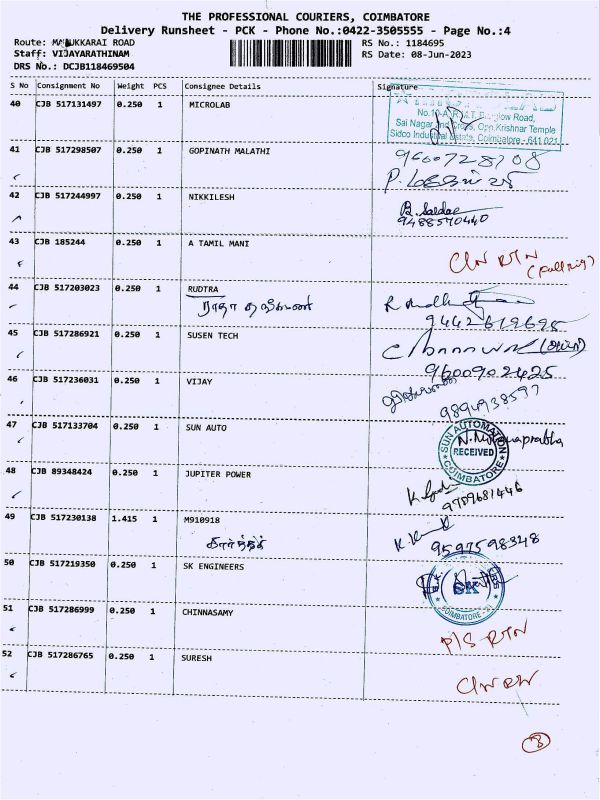 THE PROFESSIONAL COURIERS, COIMBATORE
Delivery Runsheet - PCK - Phone No.:0422-3505555 - Page No.:4
Route: MANUKKARAI ROAD RS No.: 1184695
Staff: VIJAYARATHINAM RS Date: 08-Jun-2023
DRS No.: DCJB118469504
S No Consignment No Weight PCS Consignee Details Signature
40 CJB 517131497 0.250 1 MICROLAB
Road,
Sai Nagar Cross, Opp.Krishnar Temple
Sidco Industrial Estate, Coimbatore - 641 021
41 CJB 517298507 0.250 1 GOPINATH MALATHI 9600728708
42 CJB 517244997 0.250 1 NIKKILESH
9488570440
43 CJB 185244 0.250 1 A TAMIL MANI
44 CJB 517203023 0.250 1 RUDTRA
9442619695
45 CJB 517286921 0.250 1 SUSEN TECH
9600902425
46 CJB 517236031 0.250 1 VIJAY
9894938597
47 CJB 517133704 0.250 1 SUN AUTO
SUN AUTOMATION
RECEIVED
COIMBATORE
48 CJB 89348424 0.250 1 JUPITER POWER
9789681446
49 CJB 517230138 1.415 1 M910918
9597598348
50 CJB 517219350 0.250 1 SK ENGINEERS
SK
COIMBATORE
51 CJB 517286999 0.250 1 CHINNASAMY
P/S RTN
52 CJB 517286765 0.250 1 SURESH
8